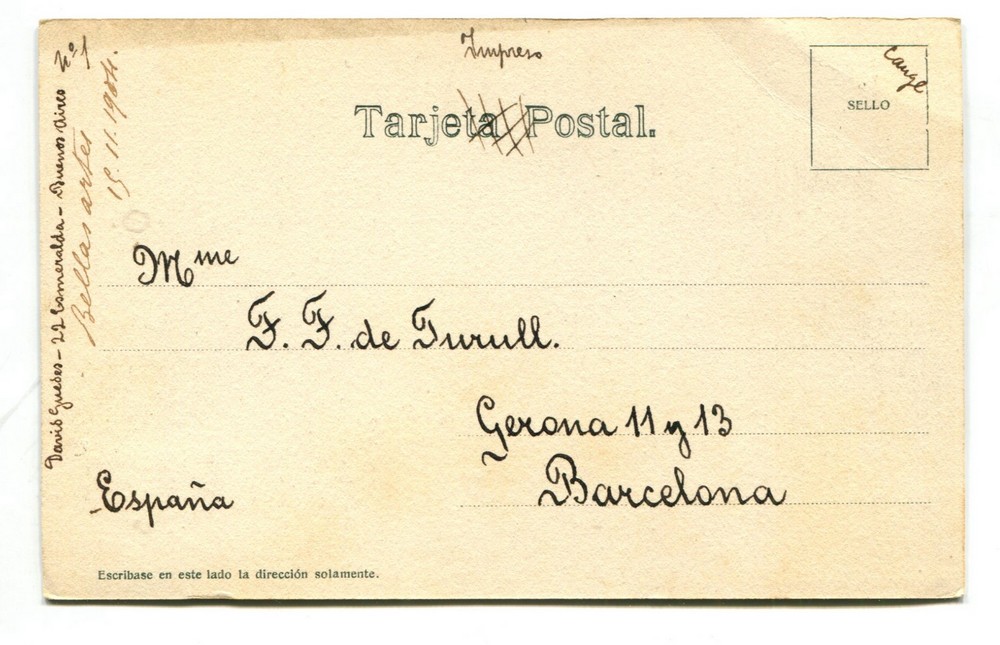 Impreso
Tarjeta Postal.
cange
SELLO
Mme
F. F. de Turull.
Gerona 11 y 13
Barcelona
España
Escribase en este lado la dirección solamente.
David Guedes - 22 Esmeralda - Buenos Aires Nº 1
Bellas artes
15.11.1904.